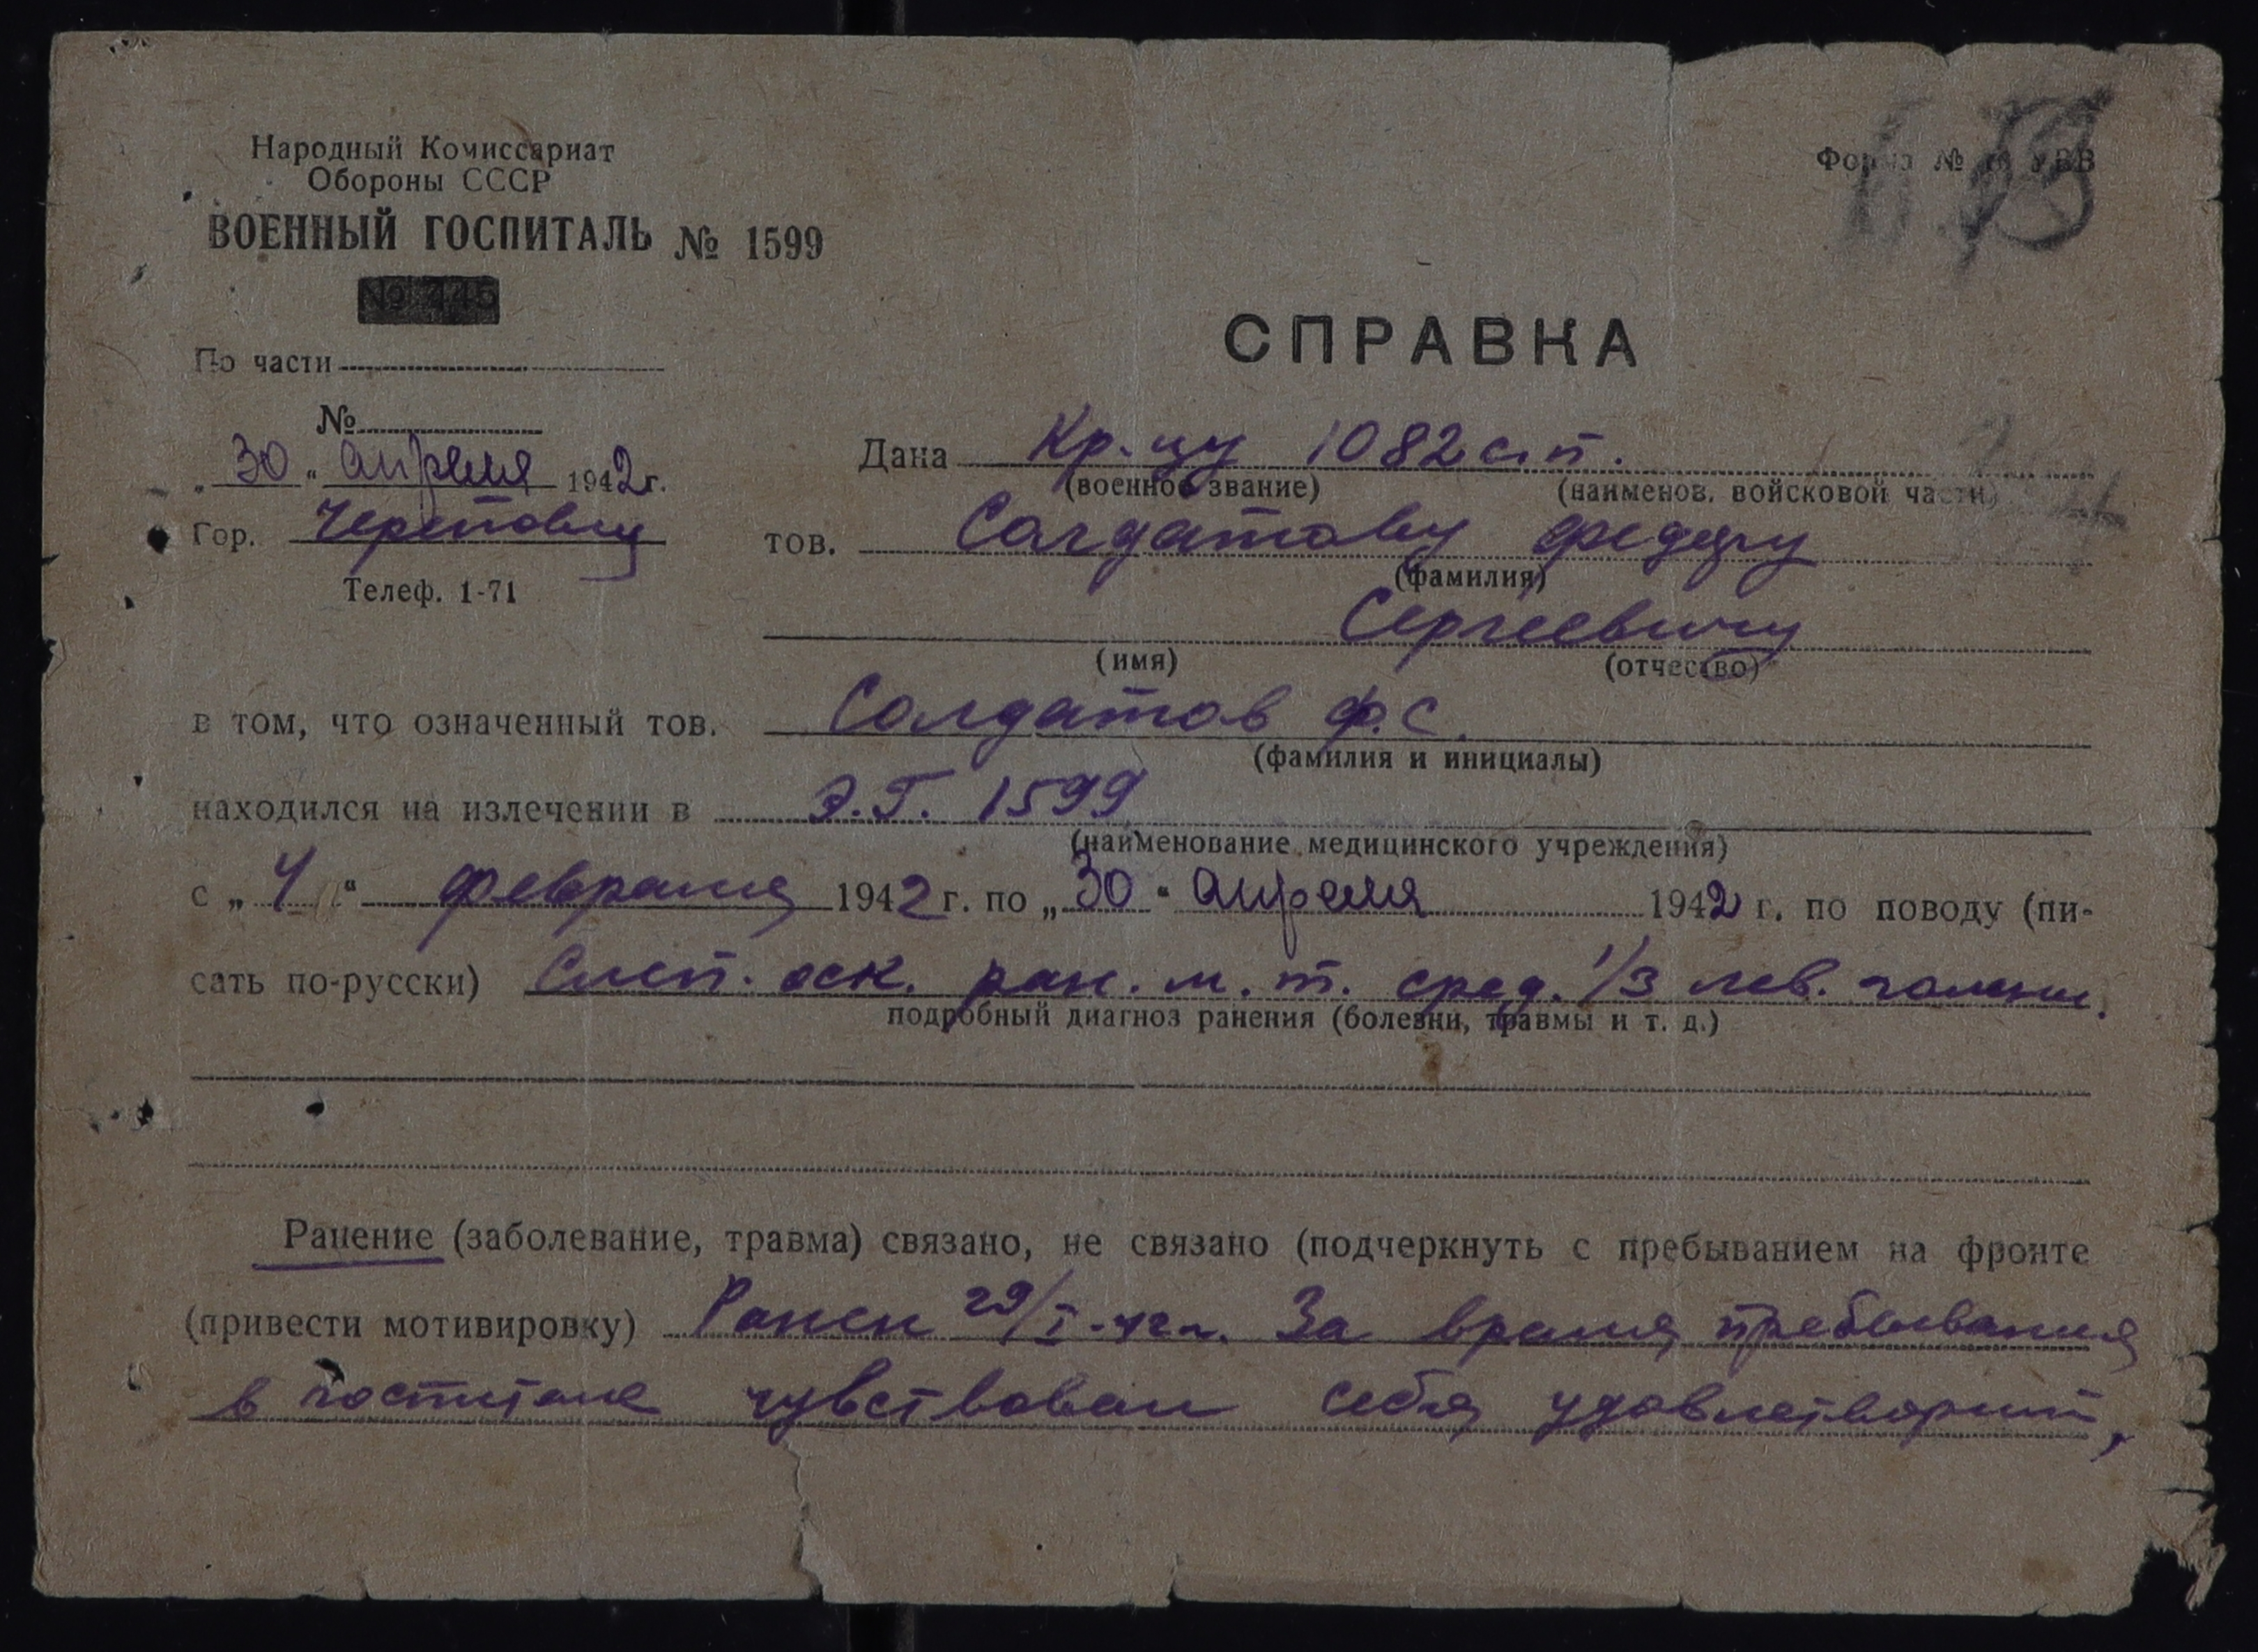 Народный Комиссариат
Обороны СССР
ВОЕННЫЙ ГОСПИТАЛЬ № 1599
№ 445
Форма № УВВ
СПРАВКА
По части
№
„30“ апреля 1942 г.
Гор. Череповец
Телеф. 1-71
Дана Кр-цу 1082 с.п.
(военное звание) (наименов. войсковой части)
тов. Солдатову Федору
(фамилия)
Сергеевичу
(имя) (отчество)
в том, что означенный тов. Солдатов Ф. С.
(фамилия и инициалы)
находился на излечении в Э.Г. 1599
(наименование медицинского учреждения)
с „4“ февраля 1942 г. по „30“ апреля 1942 г. по поводу (пи-
сать по-русски) Слеп. оск. ран. м. т. сред. 1/3 лев. голени.
подробный диагноз ранения (болезни, травмы и т. д.)
Ранение (заболевание, травма) связано, не связано (подчеркнуть с пребыванием на фронте
(привести мотивировку) Ранен 29/I-42 г. За время пребывания
в госпитале чувствовал себя удовлетворит.